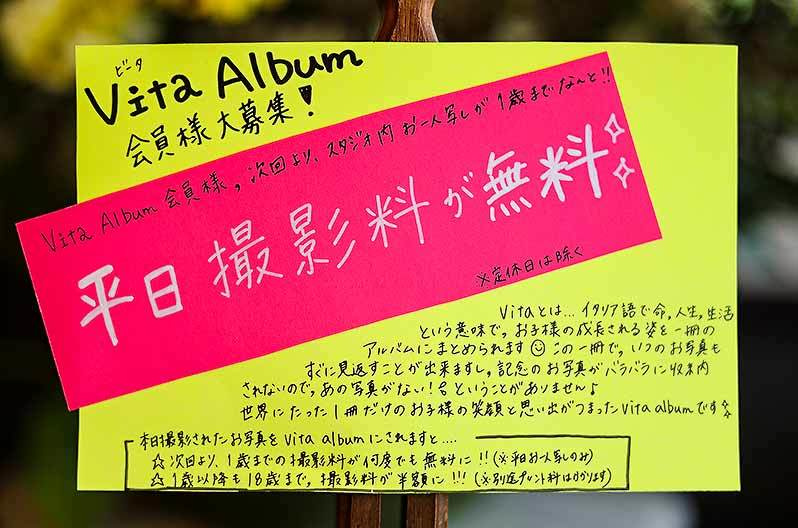 ビータ
Vita Album
会員様大募集!
Vita Album 会員様、次回より、スタジオ内お一人写しが1歳までなんと!!
平日撮影料が無料
※定休日は除く
Vitaとは...イタリア語で命,人生,生活
という意味で。お子様の成長される姿を一冊の
アルバムにまとめられます この一冊で。いつのお写真も
すぐに見返すことが出来ますし。記念のお写真がバラバラに収納
されないので。あの写真がない!ということがありません♪
世界にたった1冊だけのお子様の笑顔と思い出がつまったvita albumです☆
本日撮影されたお写真をvita albumにされますと....
☆次回より、1歳までの撮影料が何度でも無料に!!(※平日お一人写しのみ)
☆1歳以降も18歳まで。撮影料が半額に!!!(※別途プリント料はかかります)